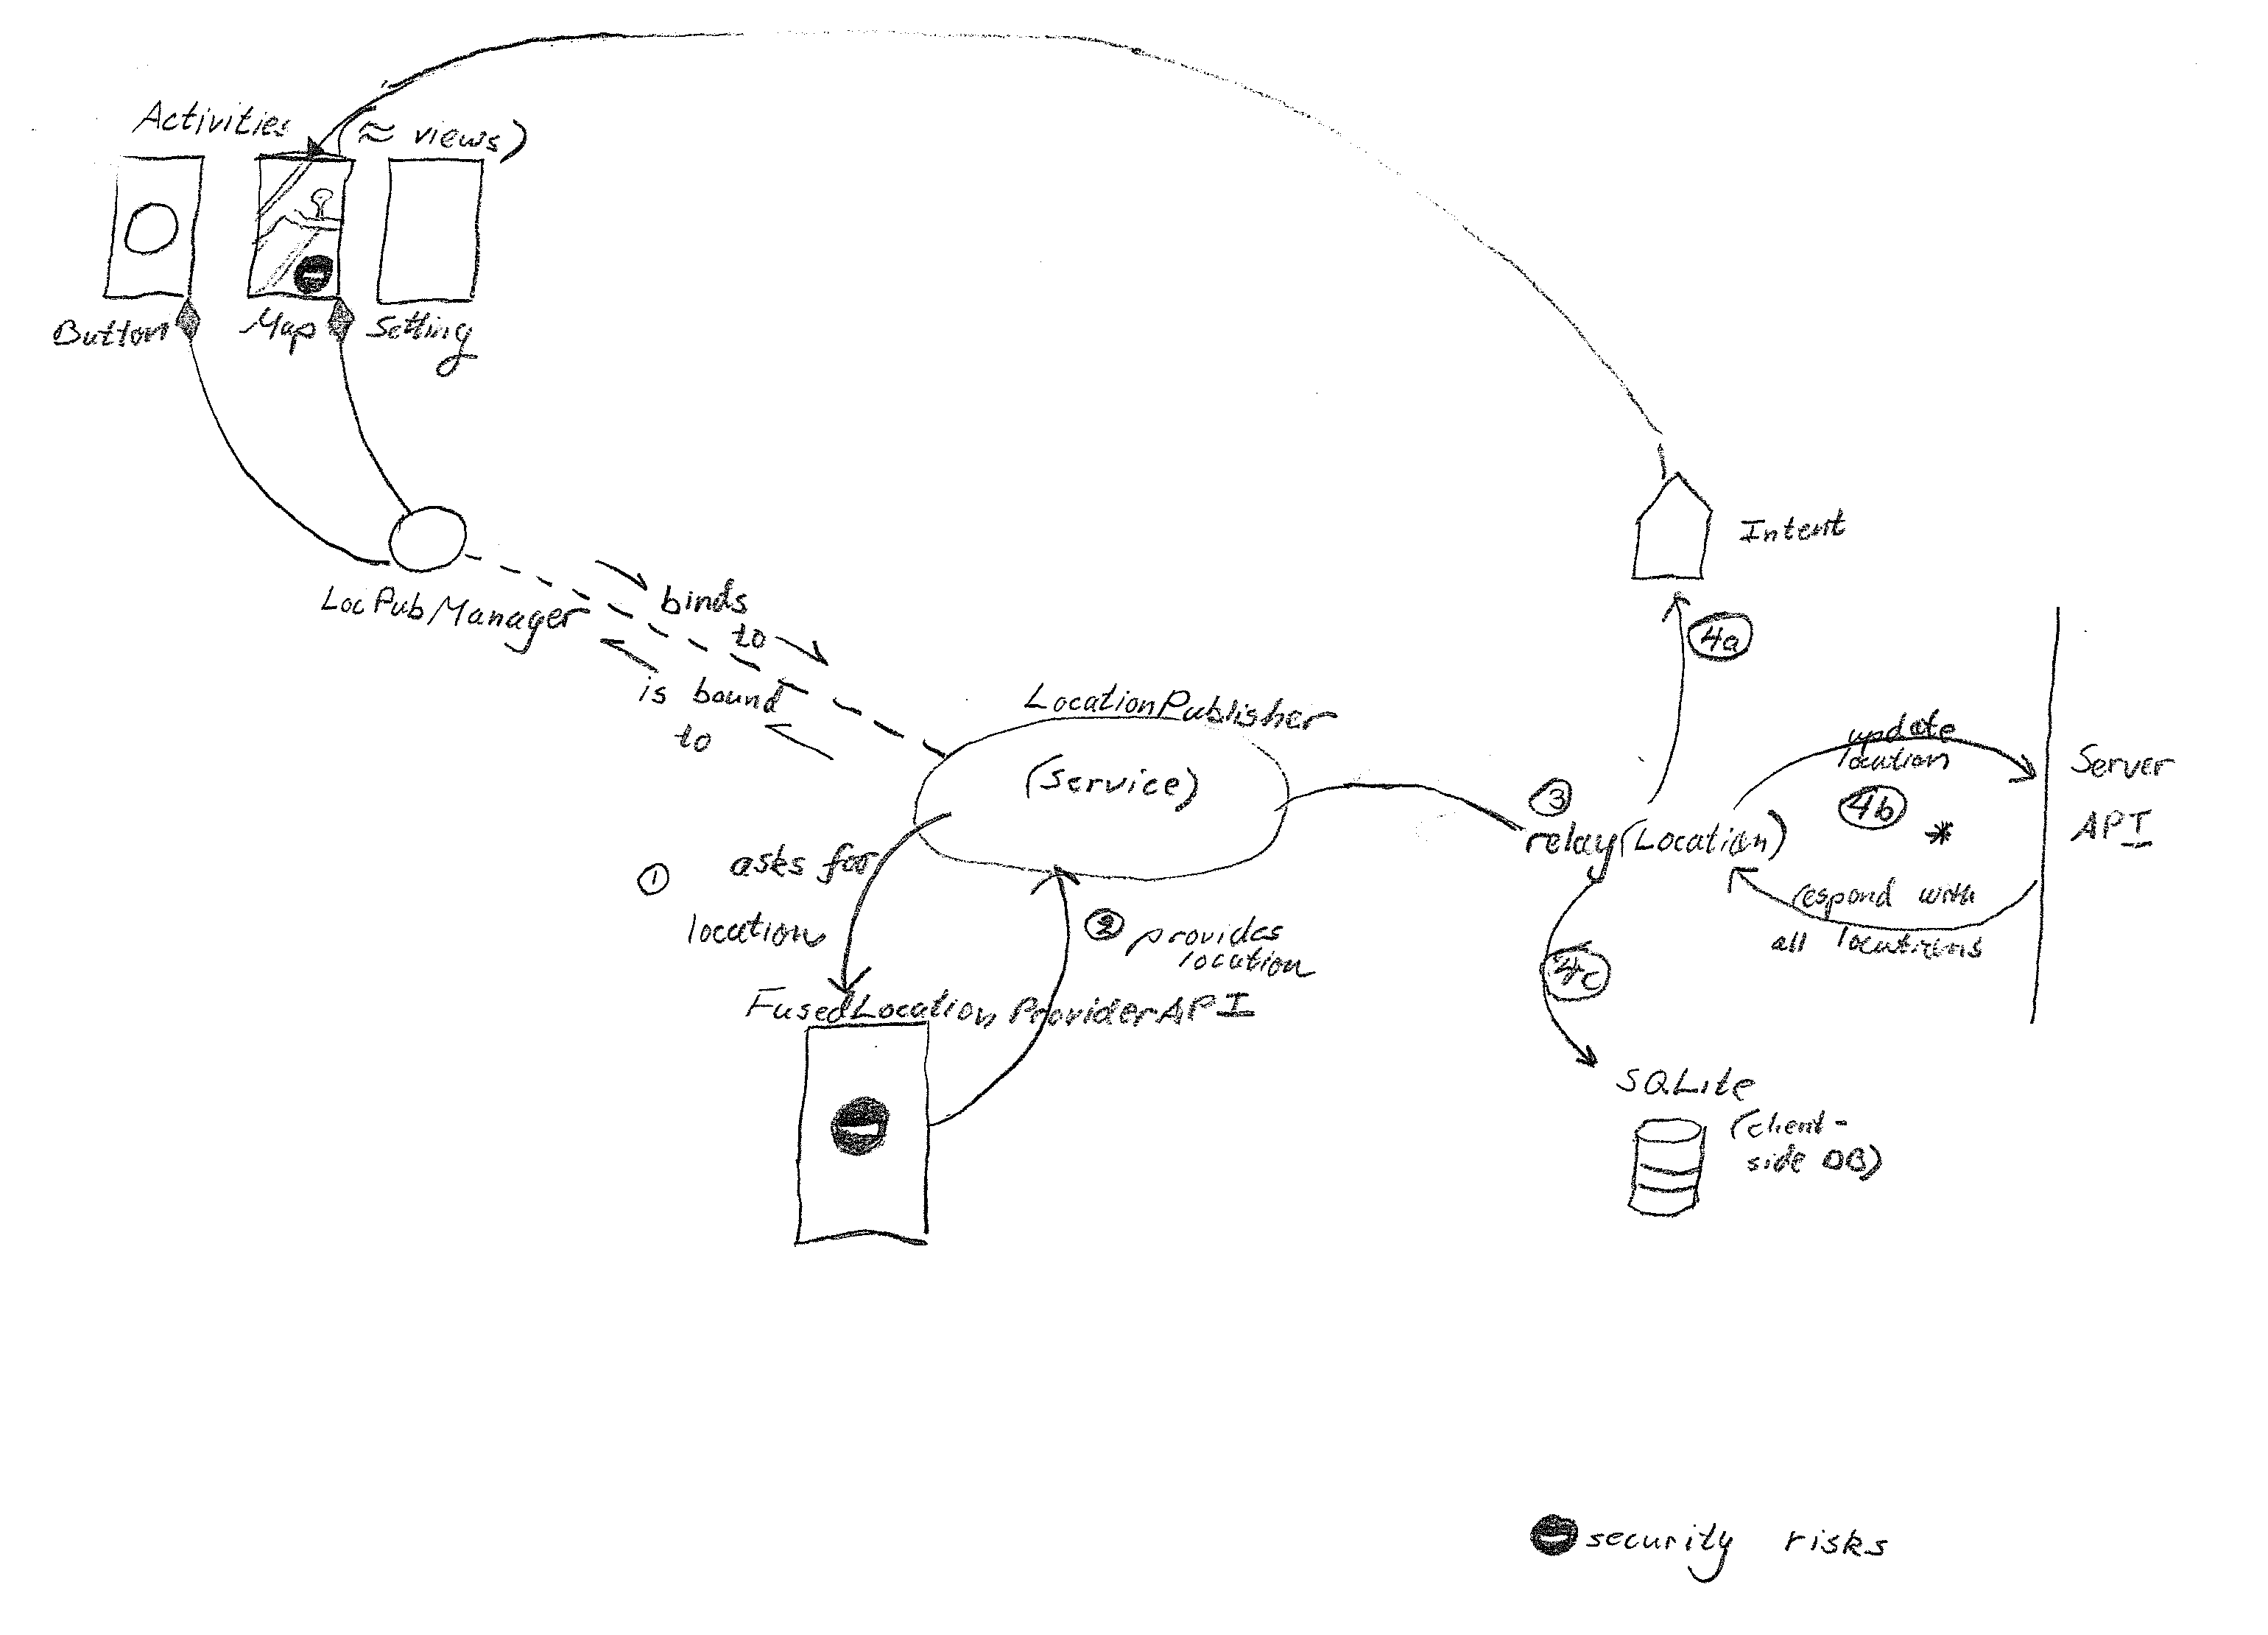 Activities (≈ views)
Button Map Setting
LocPubManager
binds
to
is bound
to
LocationPublisher
(service)
1 asks for
location
2 provides
location
FusedLocationProviderAPI
3
relay(Location)
4a
Intent
update
location
4b
*
respond with
all locations
Server
API
4c
SQLite
(client-
side DB)
security risks